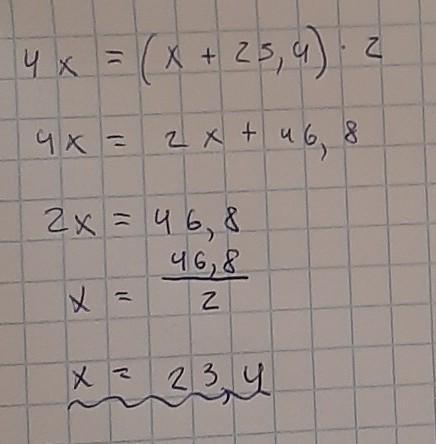 4x = (x + 25,4) · 2
4x = 2x + 46,8
2x = 46,8
x = 46,8 / 2
x = 23,4